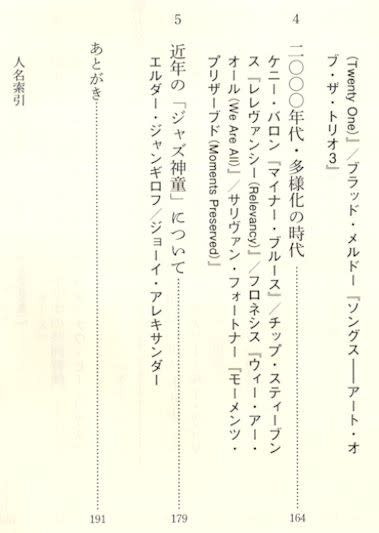 （Twenty One）』／ブラッド・メルドー『ソングス――アート・オ
ブ・ザ・トリオ3』
4 二〇〇〇年代・多様化の時代 164
ケニー・バロン『マイナー・ブルース』／チップ・スティーブン
ス『レレヴァンシー（Relevancy）』／フロネシス『ウィー・アー・
オール（We Are All）』／サリヴァン・フォートナー『モーメンツ・
プリザーブド（Moments Preserved）』
5 近年の「ジャズ神童」について 179
エルダー・ジャンギロフ／ジョーイ・アレキサンダー
あとがき 191
人名索引